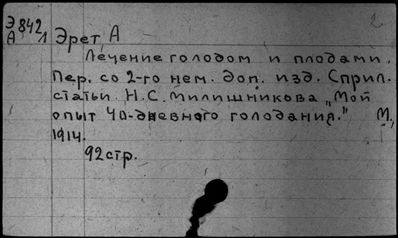 Э842
А 1
2
Эрет, А
Лечение голодом и плодами.
Пер. со 2-го нем. доп. изд. С прил.
статьи Н.С. Милишникова „Мой
опыт 40-дневного голодания." М.,
1914.
92 стр.